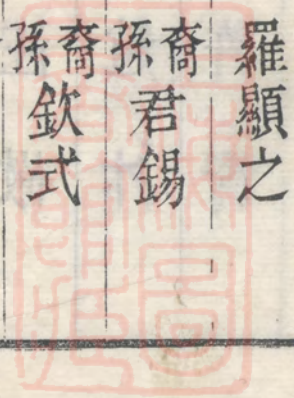 羅顯之
裔孫君錫
裔孫欽式